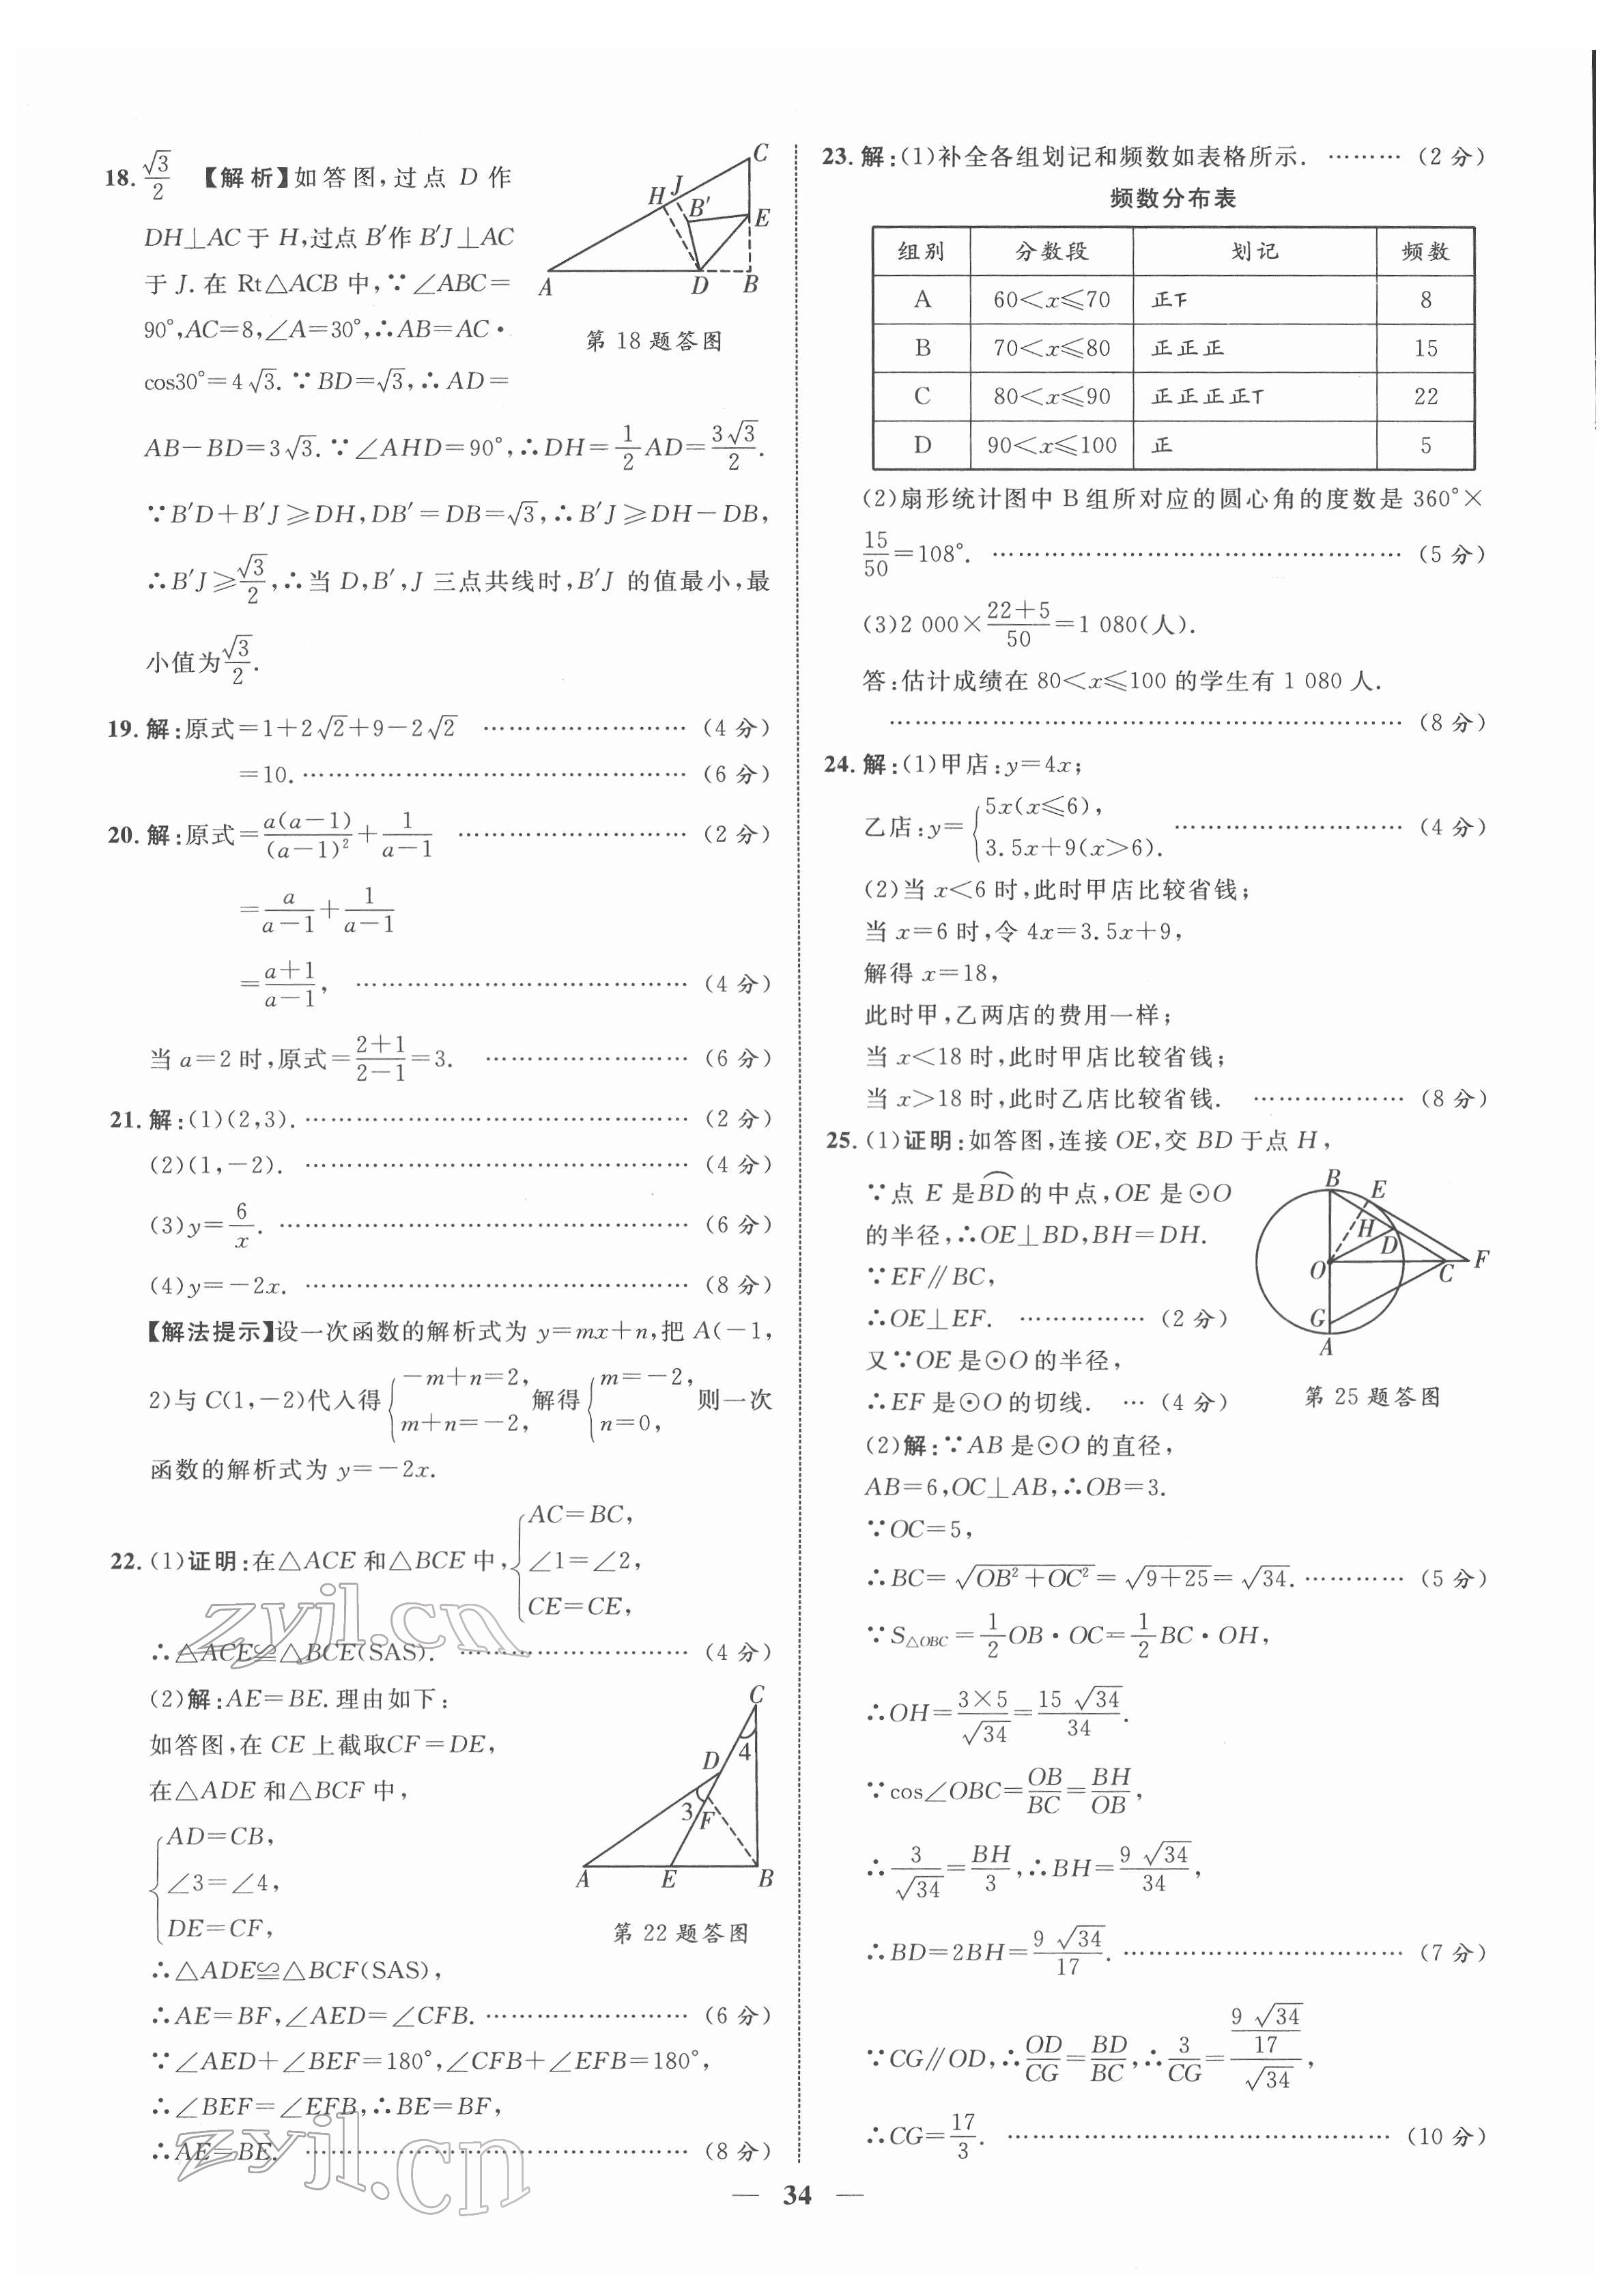 18. √3/2 【解析】如答图,过点 D 作
DH⊥AC于 H,过点 B′作 B′J⊥AC
于 J. 在 Rt△ACB 中,∵∠ABC=
90°,AC=8,∠A=30°,∴AB=AC·
cos30°=4√3. ∵BD=√3,∴AD=
AB-BD=3√3. ∵∠AHD=90°,∴DH=1/2 AD=3√3/2.
∵B′D+B′J≥DH,DB′=DB=√3,∴B′J≥DH-DB,
∴B′J≥√3/2,∴当 D,B′,J 三点共线时,B′J 的值最小,最
小值为√3/2.
C
H
J
B′
E
A
D
B
第 18 题答图
19. 解:原式=1+2√2+9-2√2 ……………………(4 分)
=10. ………………………………………(6 分)
20. 解:原式=a(a-1)/(a-1)²+1/(a-1) ………………………(2 分)
=a/(a-1)+1/(a-1)
=(a+1)/(a-1), …………………………………(4 分)
当 a=2 时,原式=(2+1)/(2-1)=3. ……………………(6 分)
21. 解:(1)(2,3). ………………………………………(2 分)
(2)(1,-2). ………………………………………(4 分)
(3)y=6/x. …………………………………………(6 分)
(4)y=-2x. ………………………………………(8 分)
【解法提示】设一次函数的解析式为 y=mx+n,把 A(-1,
2)与 C(1,-2)代入得{-m+n=2, m+n=-2, 解得{m=-2, n=0, 则一次
函数的解析式为 y=-2x.
22. (1)证明:在△ACE 和△BCE 中,{AC=BC, ∠1=∠2, CE=CE,
∴△ACE≌△BCE(SAS). ………………………(4 分)
(2)解:AE=BE. 理由如下:
如答图,在 CE 上截取CF=DE,
在△ADE 和△BCF 中,
{AD=CB,
∠3=∠4,
DE=CF,
∴△ADE≌△BCF(SAS),
∴AE=BF,∠AED=∠CFB. ……………………(6 分)
∵∠AED+∠BEF=180°,∠CFB+∠EFB=180°,
∴∠BEF=∠EFB,∴BE=BF,
∴AE=BE. ………………………………………(8 分)
C
4
D
3
F
A
E
B
第 22 题答图
23. 解:(1)补全各组划记和频数如表格所示. ………(2 分)
频数分布表
组别 分数段 划记 频数
A 60<x≤70 正𠄟 8
B 70<x≤80 正正正 15
C 80<x≤90 正正正正𠄞 22
D 90<x≤100 正 5
(2)扇形统计图中 B 组所对应的圆心角的度数是 360°×
15/50=108°. …………………………………………(5 分)
(3)2 000×(22+5)/50=1 080(人).
答:估计成绩在 80<x≤100 的学生有 1 080 人.
……………………………………………………(8 分)
24. 解:(1)甲店:y=4x;
乙店:y={5x(x≤6), 3.5x+9(x>6). ………………………(4 分)
(2)当 x<6 时,此时甲店比较省钱;
当 x=6 时,令 4x=3.5x+9,
解得 x=18,
此时甲,乙两店的费用一样;
当 x<18 时,此时甲店比较省钱;
当 x>18 时,此时乙店比较省钱. ………………(8 分)
25. (1)证明:如答图,连接 OE,交 BD 于点 H,
∵点 E 是B͡D的中点,OE 是⊙O
的半径,∴OE⊥BD,BH=DH.
∵EF∥BC,
∴OE⊥EF. ……………(2 分)
又∵OE 是⊙O 的半径,
∴EF 是⊙O 的切线. …(4 分)
B
E
H
D
O
C
F
G
A
第 25 题答图
(2)解:∵AB 是⊙O 的直径,
AB=6,OC⊥AB,∴OB=3.
∵OC=5,
∴BC=√(OB²+OC²)=√(9+25)=√34. …………(5 分)
∵S△OBC=1/2 OB·OC=1/2 BC·OH,
∴OH=3×5/√34=15√34/34.
∵cos∠OBC=OB/BC=BH/OB,
∴3/√34=BH/3,∴BH=9√34/34,
∴BD=2BH=9√34/17. ……………………………(7 分)
∵CG∥OD,∴OD/CG=BD/BC,∴3/CG=(9√34/17)/√34,
∴CG=17/3. ………………………………………(10 分)
— 34 —
zyjl.cn
zyjl.cn